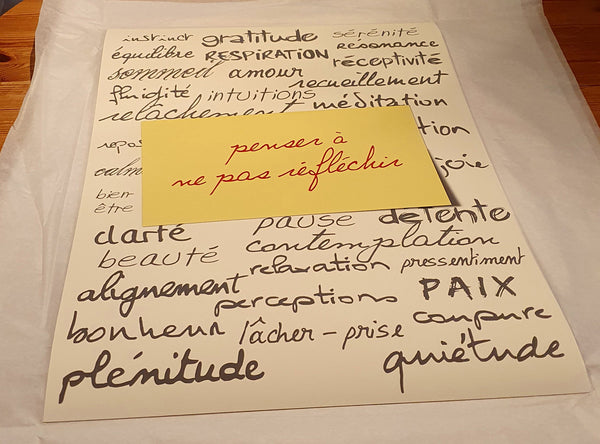 instinct gratitude sérénité
équilibre RESPIRATION résonance
sommeil amour réceptivité
fluidité intuitions recueillement
relâchement méditation
penser à
ne pas réfléchir
joie
bien
être
clarté pause détente
beauté contemplation
alignement relaxation pressentiment
perceptions PAIX
bonheur lâcher-prise coupure
plénitude quiétude